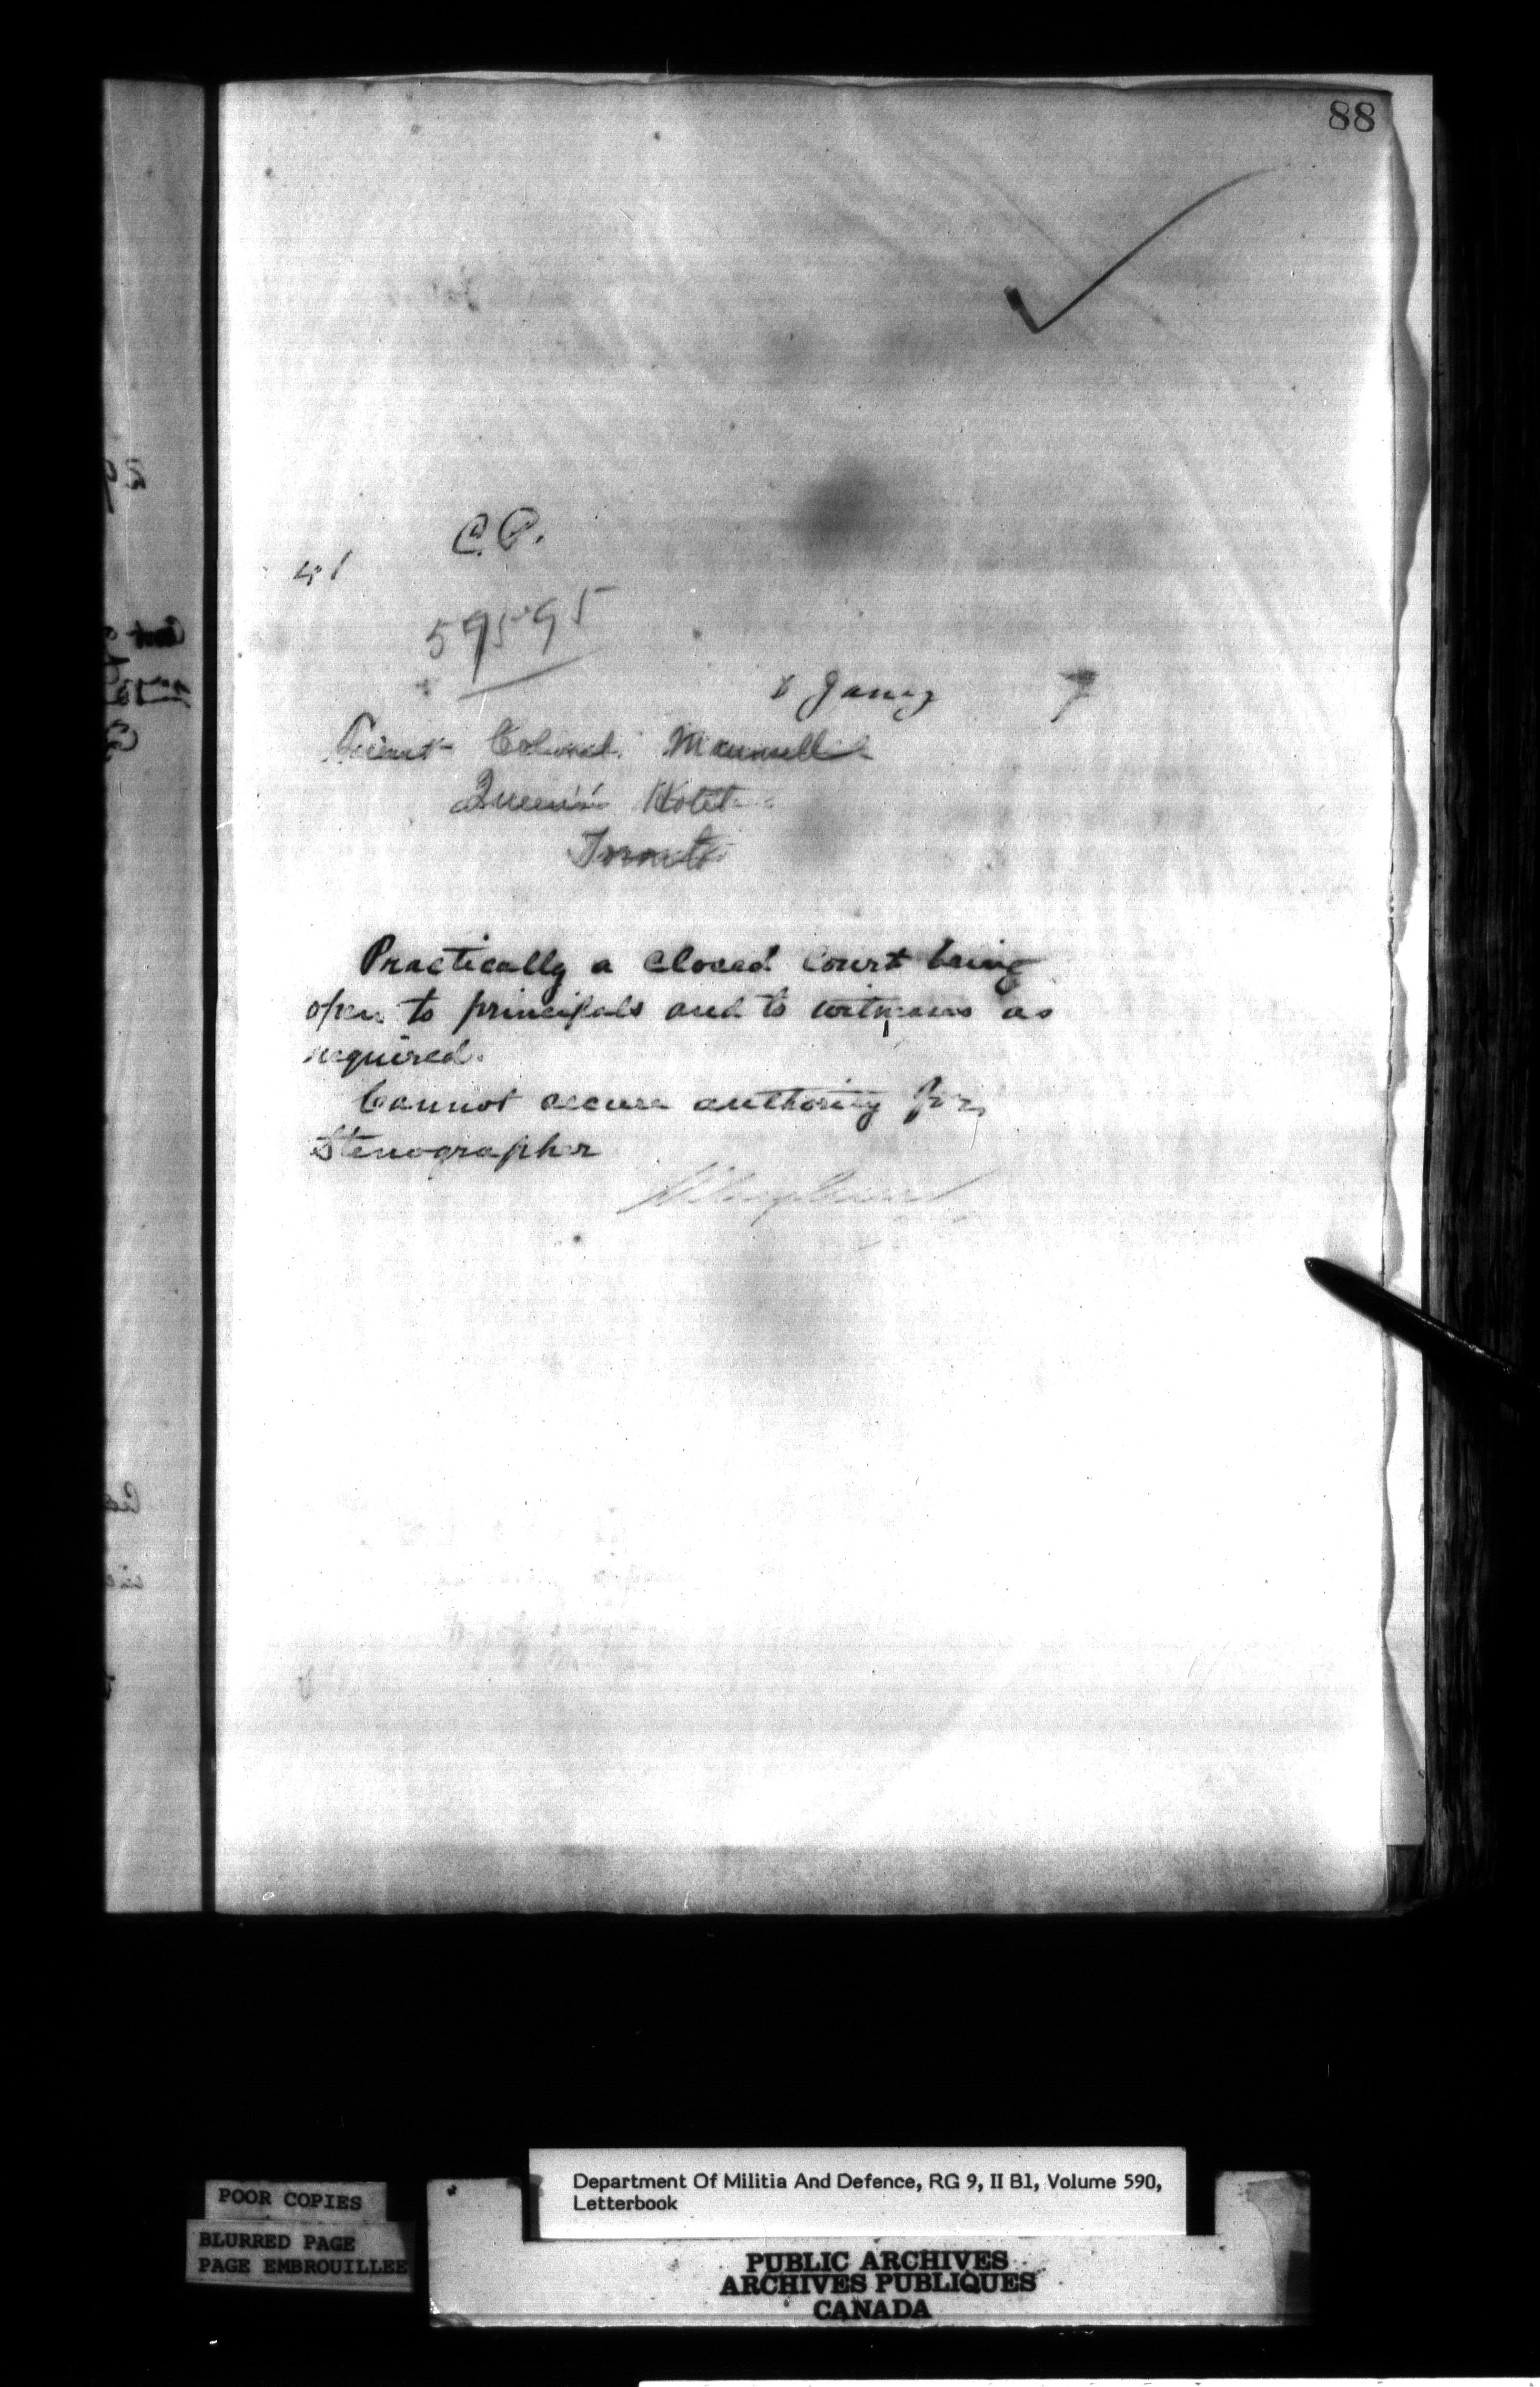 88
C.P.
41
59595
8 Jany 7
Lieut Colonel Maunsell
Queen's Hotel
Toronto
Practically a closed Court being
open to principals and to witnesses as
required.
Cannot secure authority for
Stenographer
POOR COPIES
BLURRED PAGE
PAGE EMBROUILLEE
Department Of Militia And Defence, RG 9, II B1, Volume 590,
Letterbook
PUBLIC ARCHIVES
ARCHIVES PUBLIQUES
CANADA